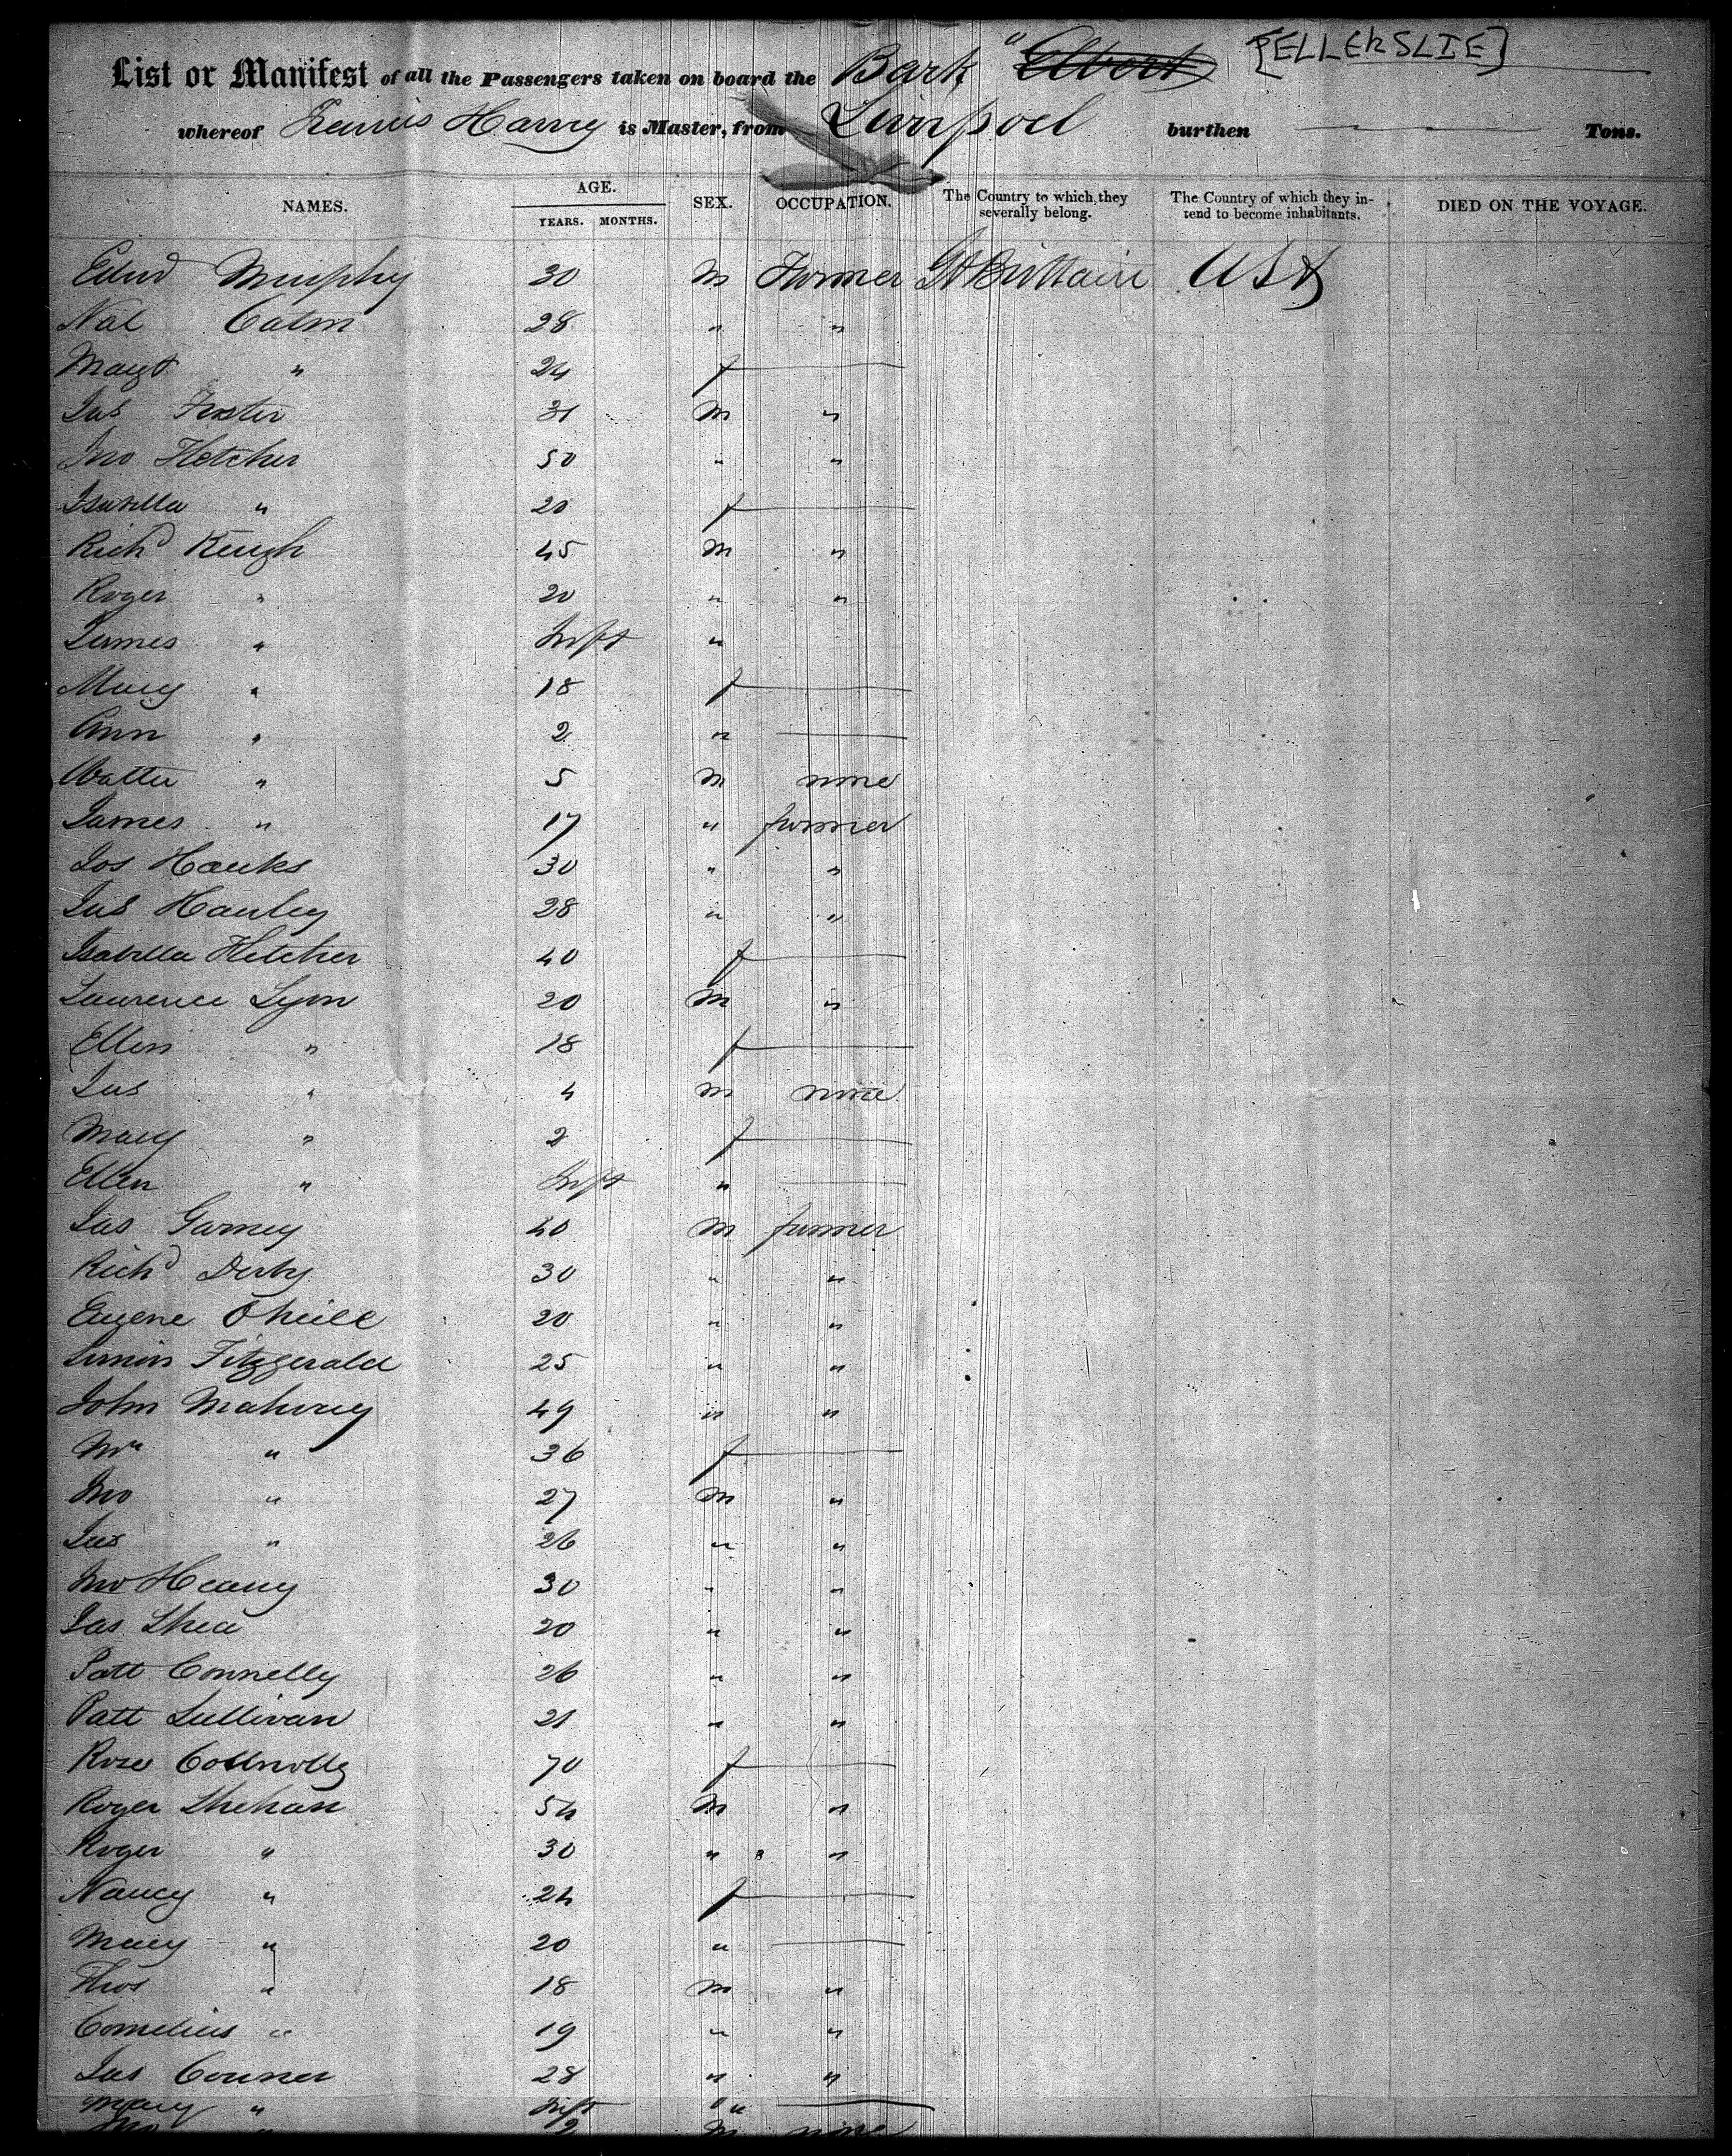 List or Manifest of all the Passengers taken on board the Bark "Elbert [ELLERSLIE]
whereof Francis Harvey is Master, from Liverpool burthen Tons.
NAMES. AGE. YEARS. MONTHS. SEX. OCCUPATION. The Country to which they severally belong. The Country of which they intend to become inhabitants. DIED ON THE VOYAGE.
Edwd Murphy 30 M Farmer Gt Brittain USA
28 " "
Margt " 24 f
Jas Foster 31 M "
Jno Fletcher 50 " "
Isabella " 20 f
Richd Keugh 45 M "
Roger " 20 " "
James " Inft "
Mary " 18 f
Ann " 2 "
Walter " 5 M none
James " 17 " farmer
Jos Hanks 30 " "
Jas Hanley 28 " "
Isabella Fletcher 40 f
Laurence Lyon 20 M "
Ellen " 18 f
Jas " 4 M none
Mary " 2 f
Ellen " Inft "
Jas Garney 40 M farmer
Richd Derby 30 " "
Eugene O'neill 20 " "
Simon Fitzgerald 25 " "
John Mahoney 49 " "
Mrs " 36 f
Jno " 27 M "
Jas " 26 " "
Jno Heany 30 " "
Jas Shea 20 " "
Patt Connelly 26 " "
Patt Sullivan 21 " "
Rose Connolly 70 f
Roger Shehan 54 M "
Roger " 30 " "
Nancy " 24 f
Mary " 20 "
Thos " 18 M "
Cornelius " 19 " "
Jas Conner 28 " "
Mary " Inft "
Jno " 2 M none